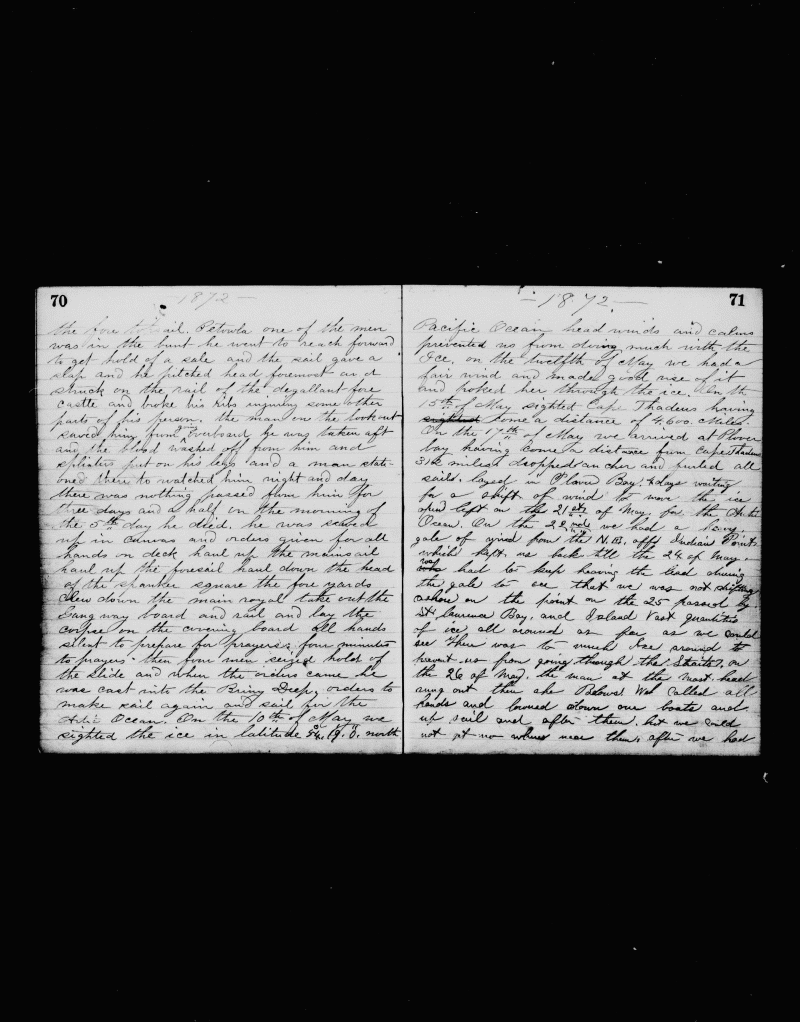 70
— 1872 —
the fore topsail. Petowla one of the men
was in the bunt he went to reach forward
to get hold of a sale and the sail gave a
slap and he pitched head foremost and
struck on the rail of the degallant fore
castle and broke his ribs injuring some other
parts of his person, the man on the lookout
saved him from going overboard he was taken aft
and the blood washed off from him and
splinters put on his legs and a man stati-
oned there to watched him night and day
there was nothing passed from him for
three days and a half on the morning of
the 5th day he died. he was sewed
up in canvas and orders given for all
hands on deck haul up the mainsail
haul up the foresail haul down the head
of the spanker square the fore yards
Clew down the main royal take out the
Gang way board and rail and lay the
corpse on the covering board All hands
silent to prepare for prayers, four minutes
to prayers then four men seized hold of
the slide and when the orders came he
was cast into the Briny Deep, orders to
make sail again and sail for the
Artic Ocean. On the 10th of May we
sighted the ice in latitude 54. 19. 0. north
71
— 1872. —
Pacific Ocean head winds and calms
prevented us from doing much with the
Ice, on the twelfth of May we had a
fair wind and made good use of it
and poked her through the ice. On th
15th of May sighted Cape Thadeus having
sighted come a distance of 4,600 Miles.
On the 17th of May we arrived at Plover
bay having come a distance from Cape Thadeus
312 miles dropped anchor and furled all
sails. layed in Plover Bay. 4 days waiting
for a shift of wind to move the ice
and left on the 21st of May for the Artic
Ocean. On the 22nd we had a heavy
gale of wind from the N.E. off Indian Point.
which kept us back till the 24 of May
was had to keep heaving the lead during
the gale to see that we was not shifting
ashore on the point on the 25 passed by
St Laurence Bay. and Island Vast quantities
of ice all around as far as we could
see There was to much Ice around to
prevent us from going through the Straits, on
the 26 of May. the man at the mast head
sung out then she Blows! We Called all
hands and lowered down our boats and
up sail and after them. but we could
not get no where near them, after we had